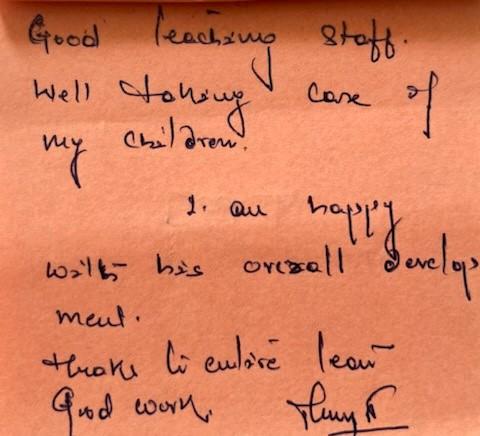 Good Teaching Staff.
Well taking care of
my children.
I. am happy
with his overall develop
ment.
thanks to entire team
Good work.